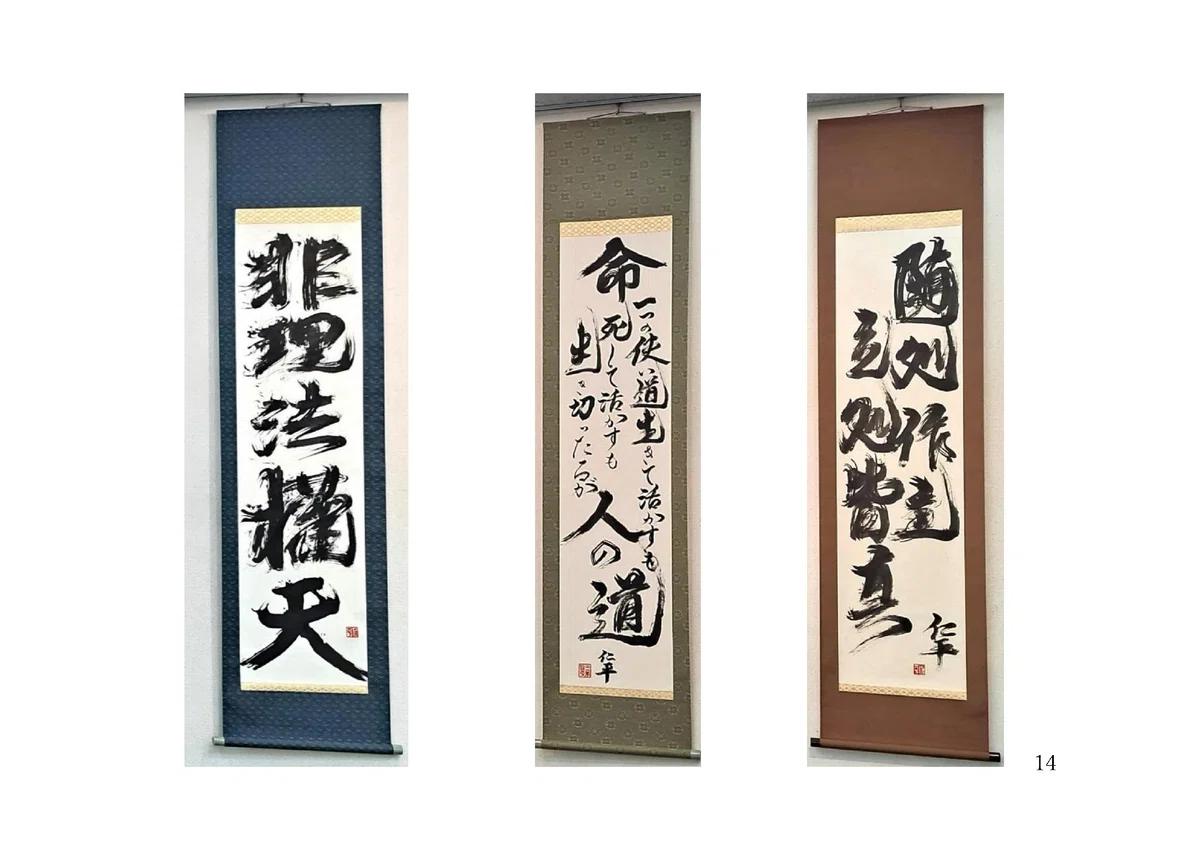 非理法權天
命
一つの使い道生きて活かすも
死して活かすも
生き切ったるが
人の道
仁平
随処作主
立処皆真
仁平
14